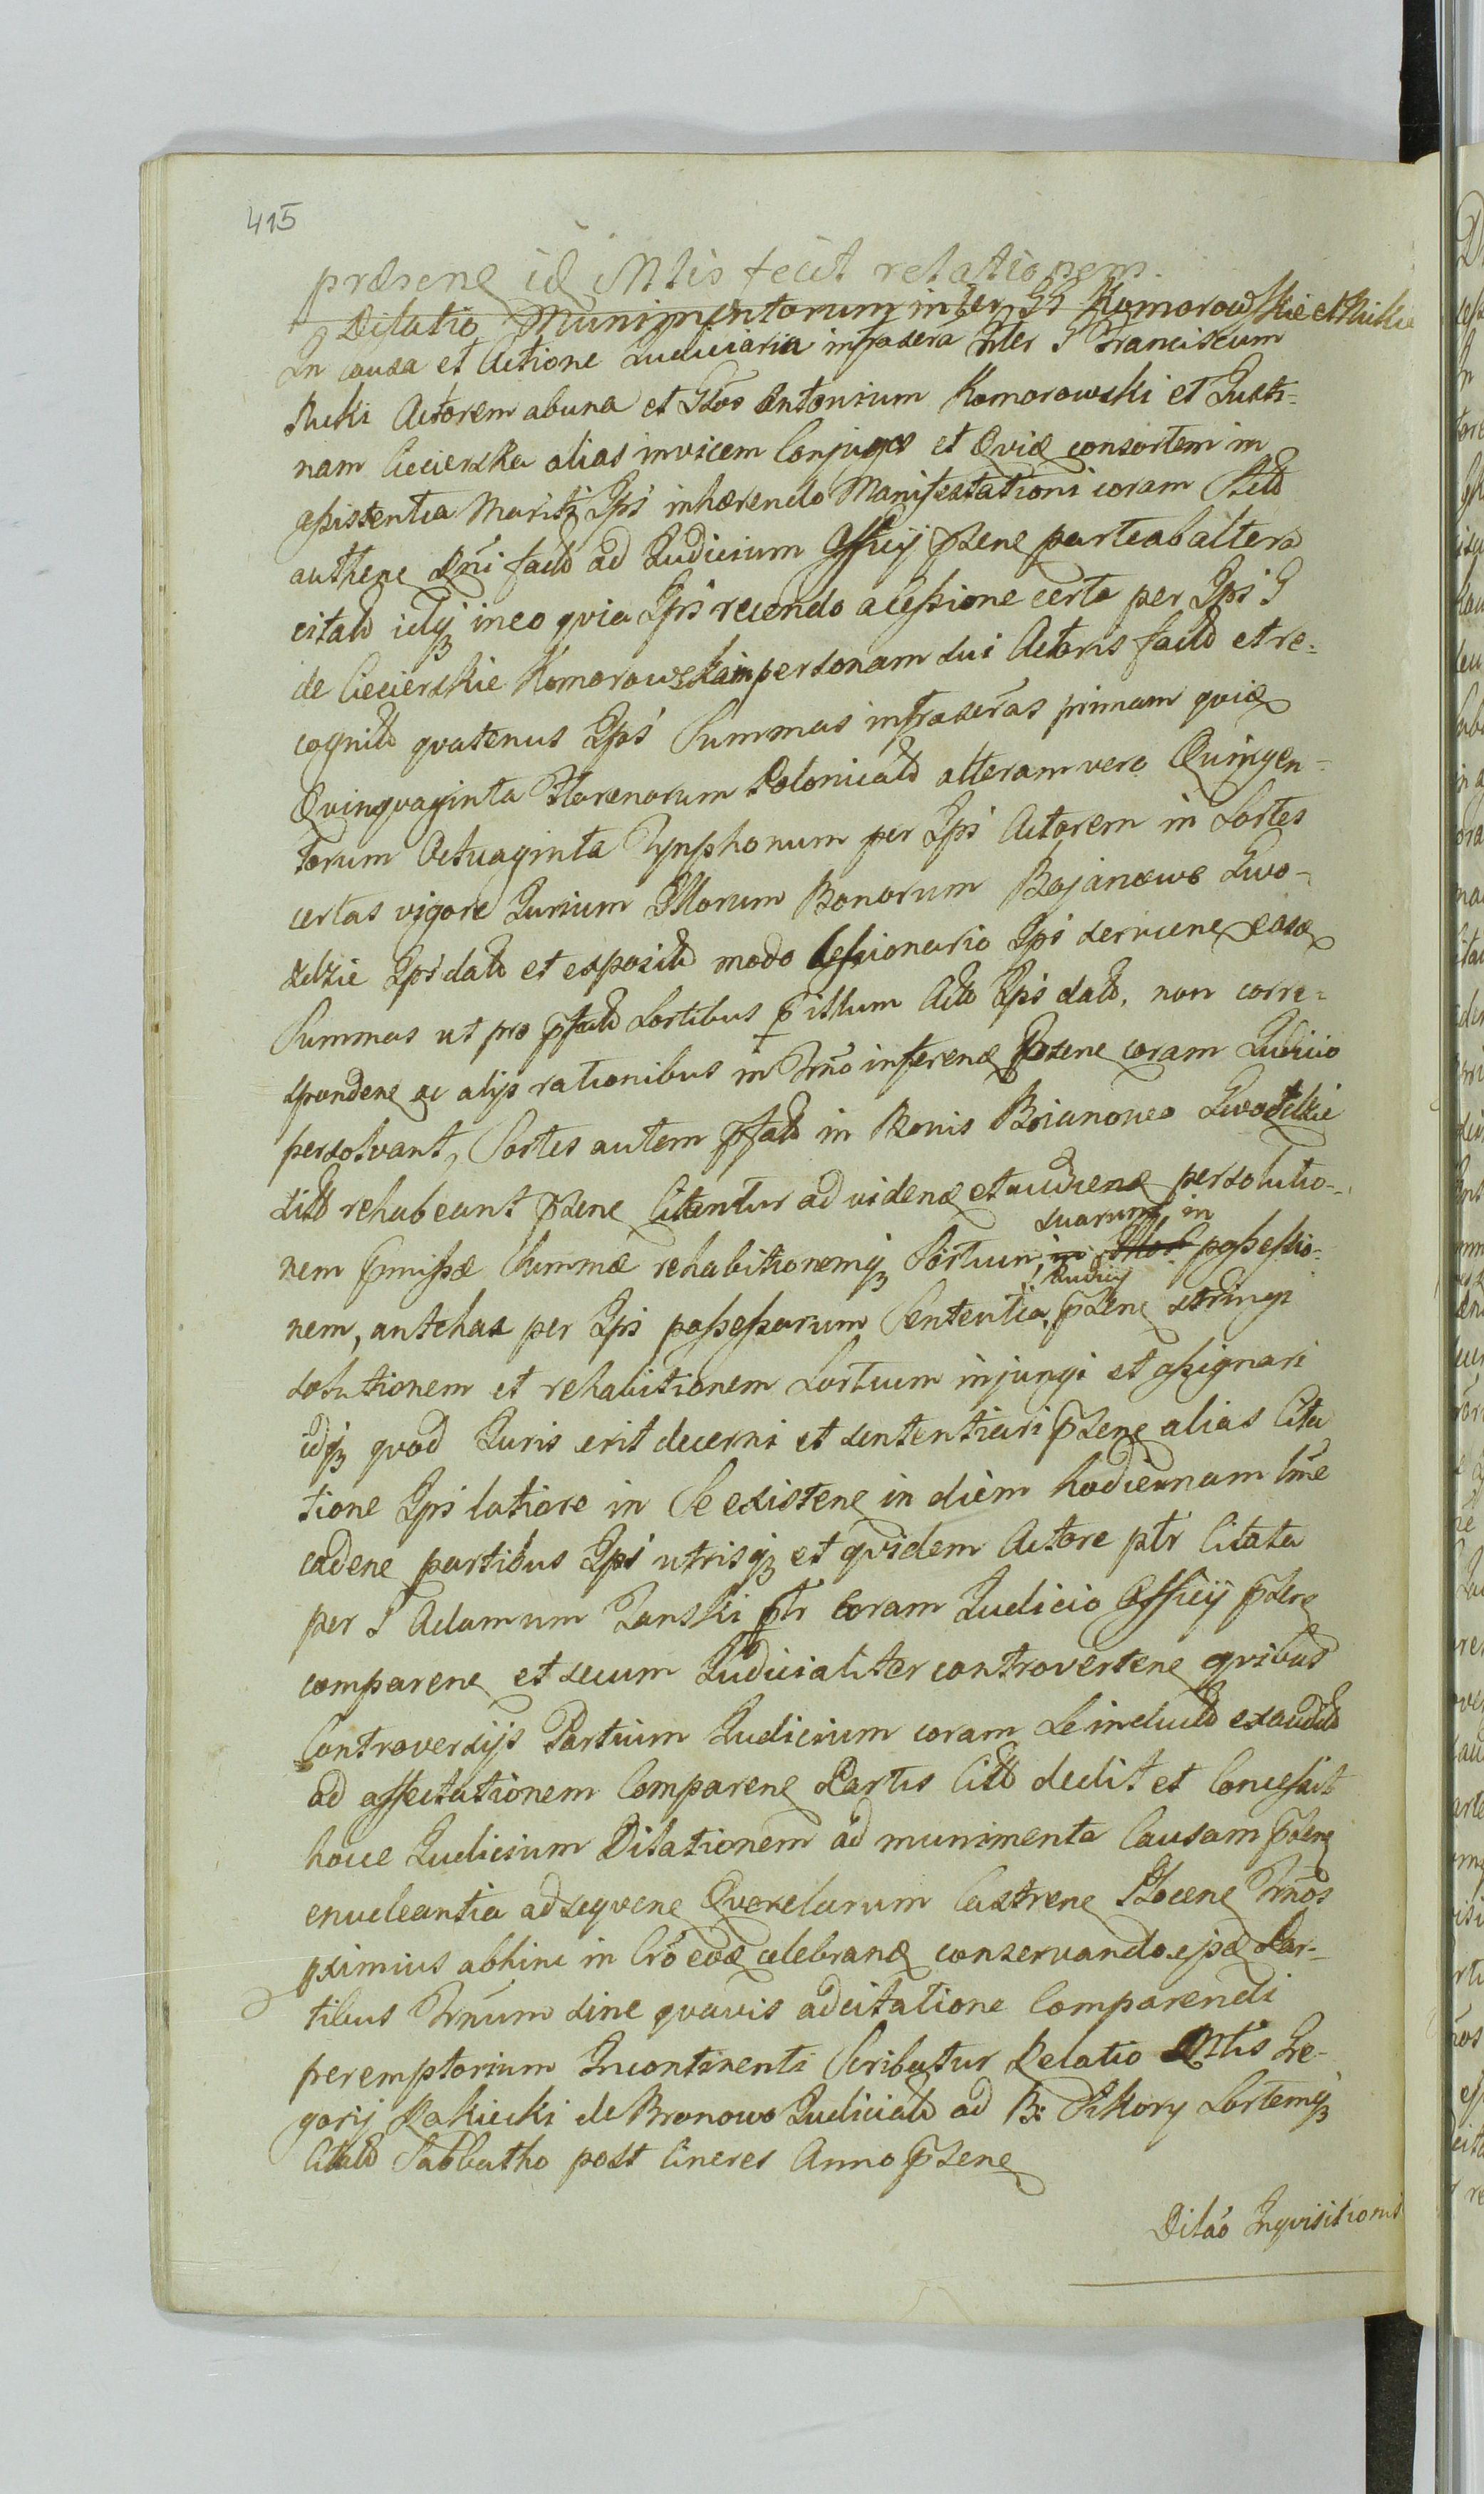 415
præsene id Mtis fecit relationem.
Dilatio Munimentorum inter GG Komorowskie et Ruki
In causa et Actione Judiciaria infrascra Inter G Franciscum
Ruki Actorem ab una et Gsos Antonium Komorowski et Justi-
nam Ciecierska alias invicem Conjuges et Quidē consortem in
assistentia Mariti Ipsi inhærendo Manifestationi coram Actis
authene Dni facto ad Judicium Officij psene parte ab altera
citato idq in eo quia Ipsi recendo a Cessione certa per Ipsi G
de Ciecierskie Komorowska in personam sui Actoris facto et re-
cognito quatenus Ipsi Summas infrascras primam quidē
Quinquaginta Florenorum Polonicalo alteram vero Quingen-
torum Octuaginta Tynphonum per Ipsi Actorem in Sortes
certas vigore Jurium Illorum Bonorum Bojanowo Gwo-
zdzie Ipsi dato et exposito modo Cessionario Ipsi serviene easdē
Summas ut pro pfato Sortibus p illum Acto Ipsi dato, non corre-
spondene ac alijs rationibus in Trno inferenđ psene coram Judicio
persolvant, Sortes autem pfato in Bonis Boianowo Gwozdzie
sito rehabeant psene Citantur ad videnđ et audienđ persolutio-
nem pmissæ Summæ rehabitionemq Sortium suarum, in possessio-
nem, antehac per Ipsi possessarum Sententia Judicij psene stringi
solutionem et rehabitionem Sortium injungi et assignari
idq quod Juris erit decerni et sententiari psene alias Cita
tione Ipsi latiore in Se existene in diem hodiernam lme
cadene partibus Ipsi utrisq et quidem Actore ptr Citata
per G Adamum Janski ptr Coram Judicio Officij psene
comparene et secum Judicialiter controvertene quibus
Controversijs Partium Judicium coram se inducto exaudito
ad affectationem Comparene Partis Citto dedit et Concessit
hocce Judicium Dilationem ad munimenta Causam psene
enucleantia ad seqvene Querelarum Castrene Tloćene Trnos
pximius abhinc in Cro eodē celebranđ conservando ejsdē Par-
tibus Trnum sine quavis adcitatione Comparendi
peremptorium Incontinenti Scribatur Relatio Mtis Gre-
gorij Rakiecki de Bronowo Judicialo ad B: Sikory Sortemq
Citato Sabbatho post Cineres Anno psene
Dilao Inqvisitionis